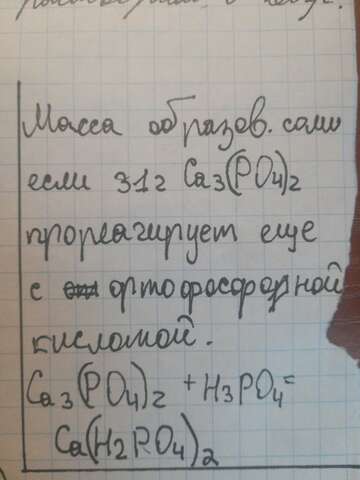 Масса образов. соли
если 31г Ca3(PO4)2
прореагирует еще
с ортофосфорной
кислотой.
Ca3(PO4)2 + H3PO4=
Ca(H2PO4)2